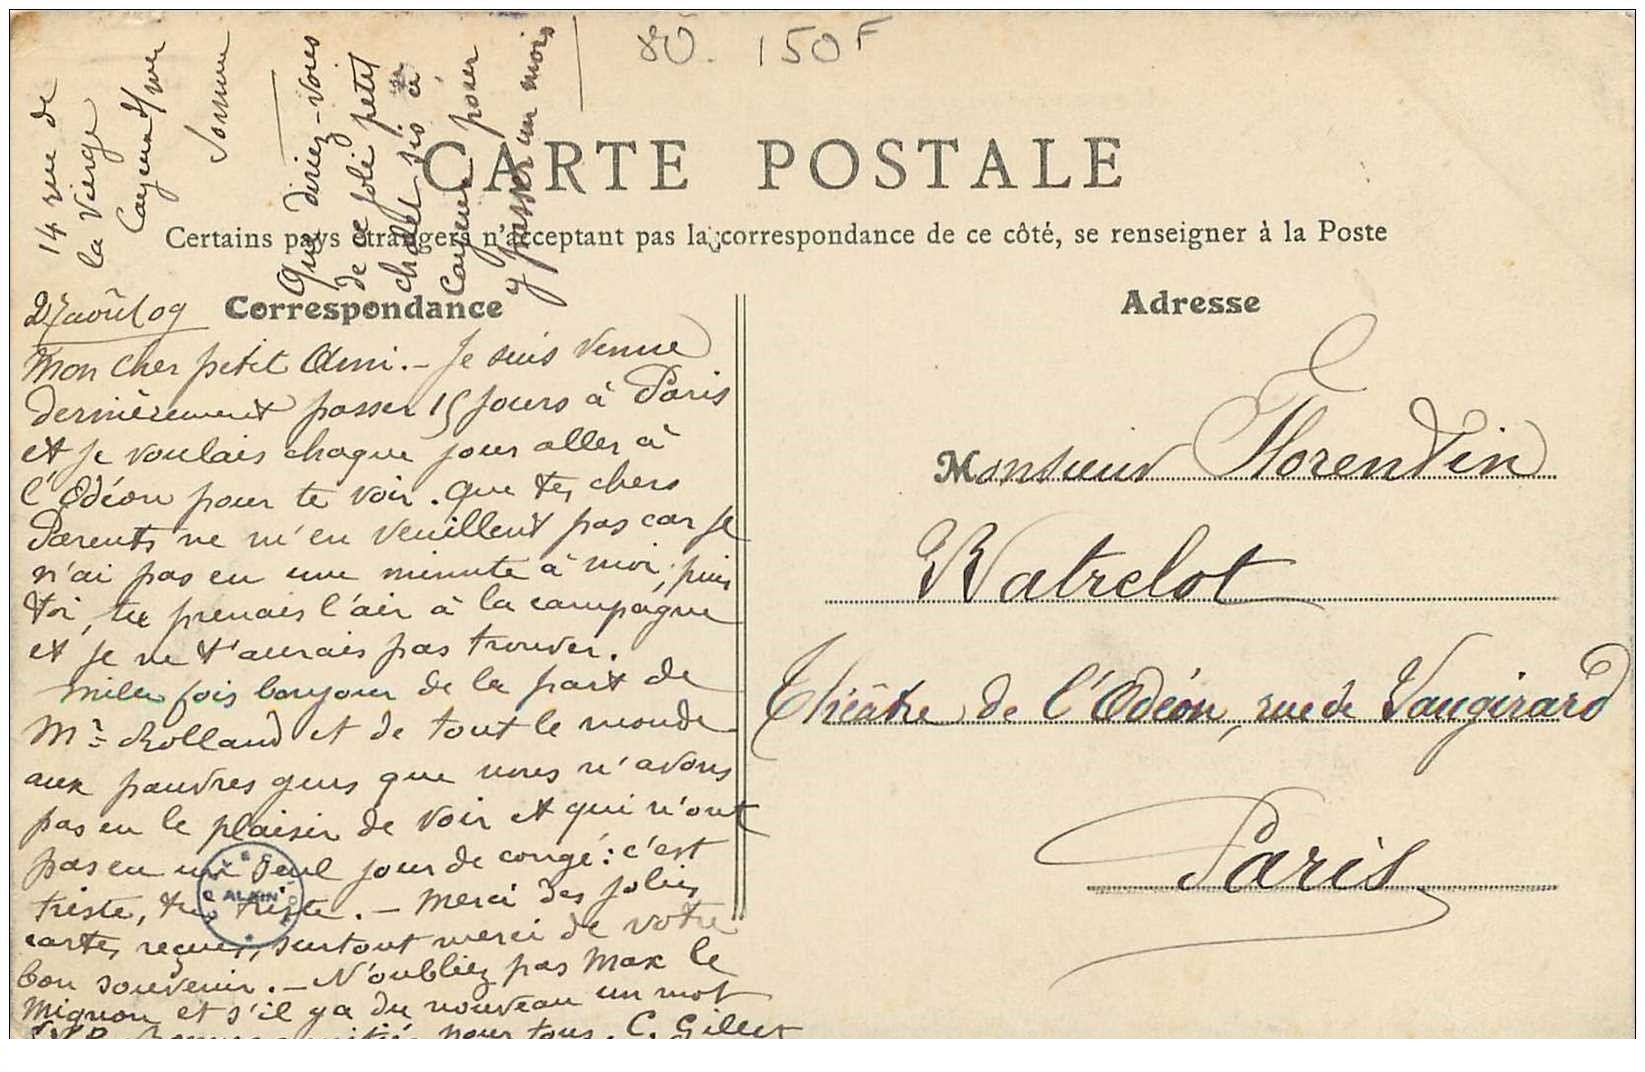 80. 150F
14 rue de
la Vierge
Cayeux s/mer
Somme
Que diriez-vous
de ce joli petit
chalet sis à
Cayeux pour
y passer un mois
CARTE POSTALE
Certains pays étrangers n'acceptant pas la correspondance de ce côté, se renseigner à la Poste
Correspondance
27 août 09
Mon cher petit Ami. — Je suis venue
dernièrement passer 15 jours à Paris
et je voulais chaque jour aller à
l'Odéon pour te voir. Que tes chers
Parents ne m'en veuillent pas car je
n'ai pas eu une minute à moi, puis
toi, tu prenais l'air à la campagne
et je ne t'aurais pas trouver.
Mille fois bonjour de la part de
Mr Rolland et de tout le monde
aux pauvres gens que nous n'avons
pas eu le plaisir de voir et qui n'ont
pas eu un seul jour de congé : c'est
triste, très triste. — Merci des jolies
cartes reçues, surtout merci de votre
bon souvenir. — N'oubliez pas Max le
Mignon et s'il y a du nouveau un mot
S.V.P. Bonnes amitiés pour tous. C. Gillet
ALAIN
Adresse
Monsieur Florentin
Watrelot
Théâtre de l'Odéon, rue de Vaugirard
Paris